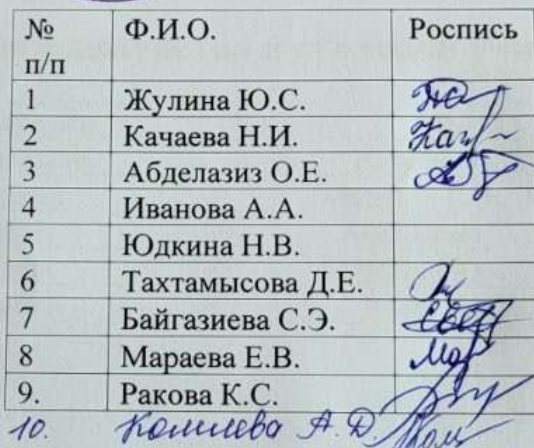 № Ф.И.О. Роспись
п/п
1 Жулина Ю.С.
2 Качаева Н.И.
3 Абделазиз О.Е.
4 Иванова А.А.
5 Юдкина Н.В.
6 Тахтамысова Д.Е.
7 Байгазиева С.Э.
8 Мараева Е.В.
9. Ракова К.С.
10. А.Д